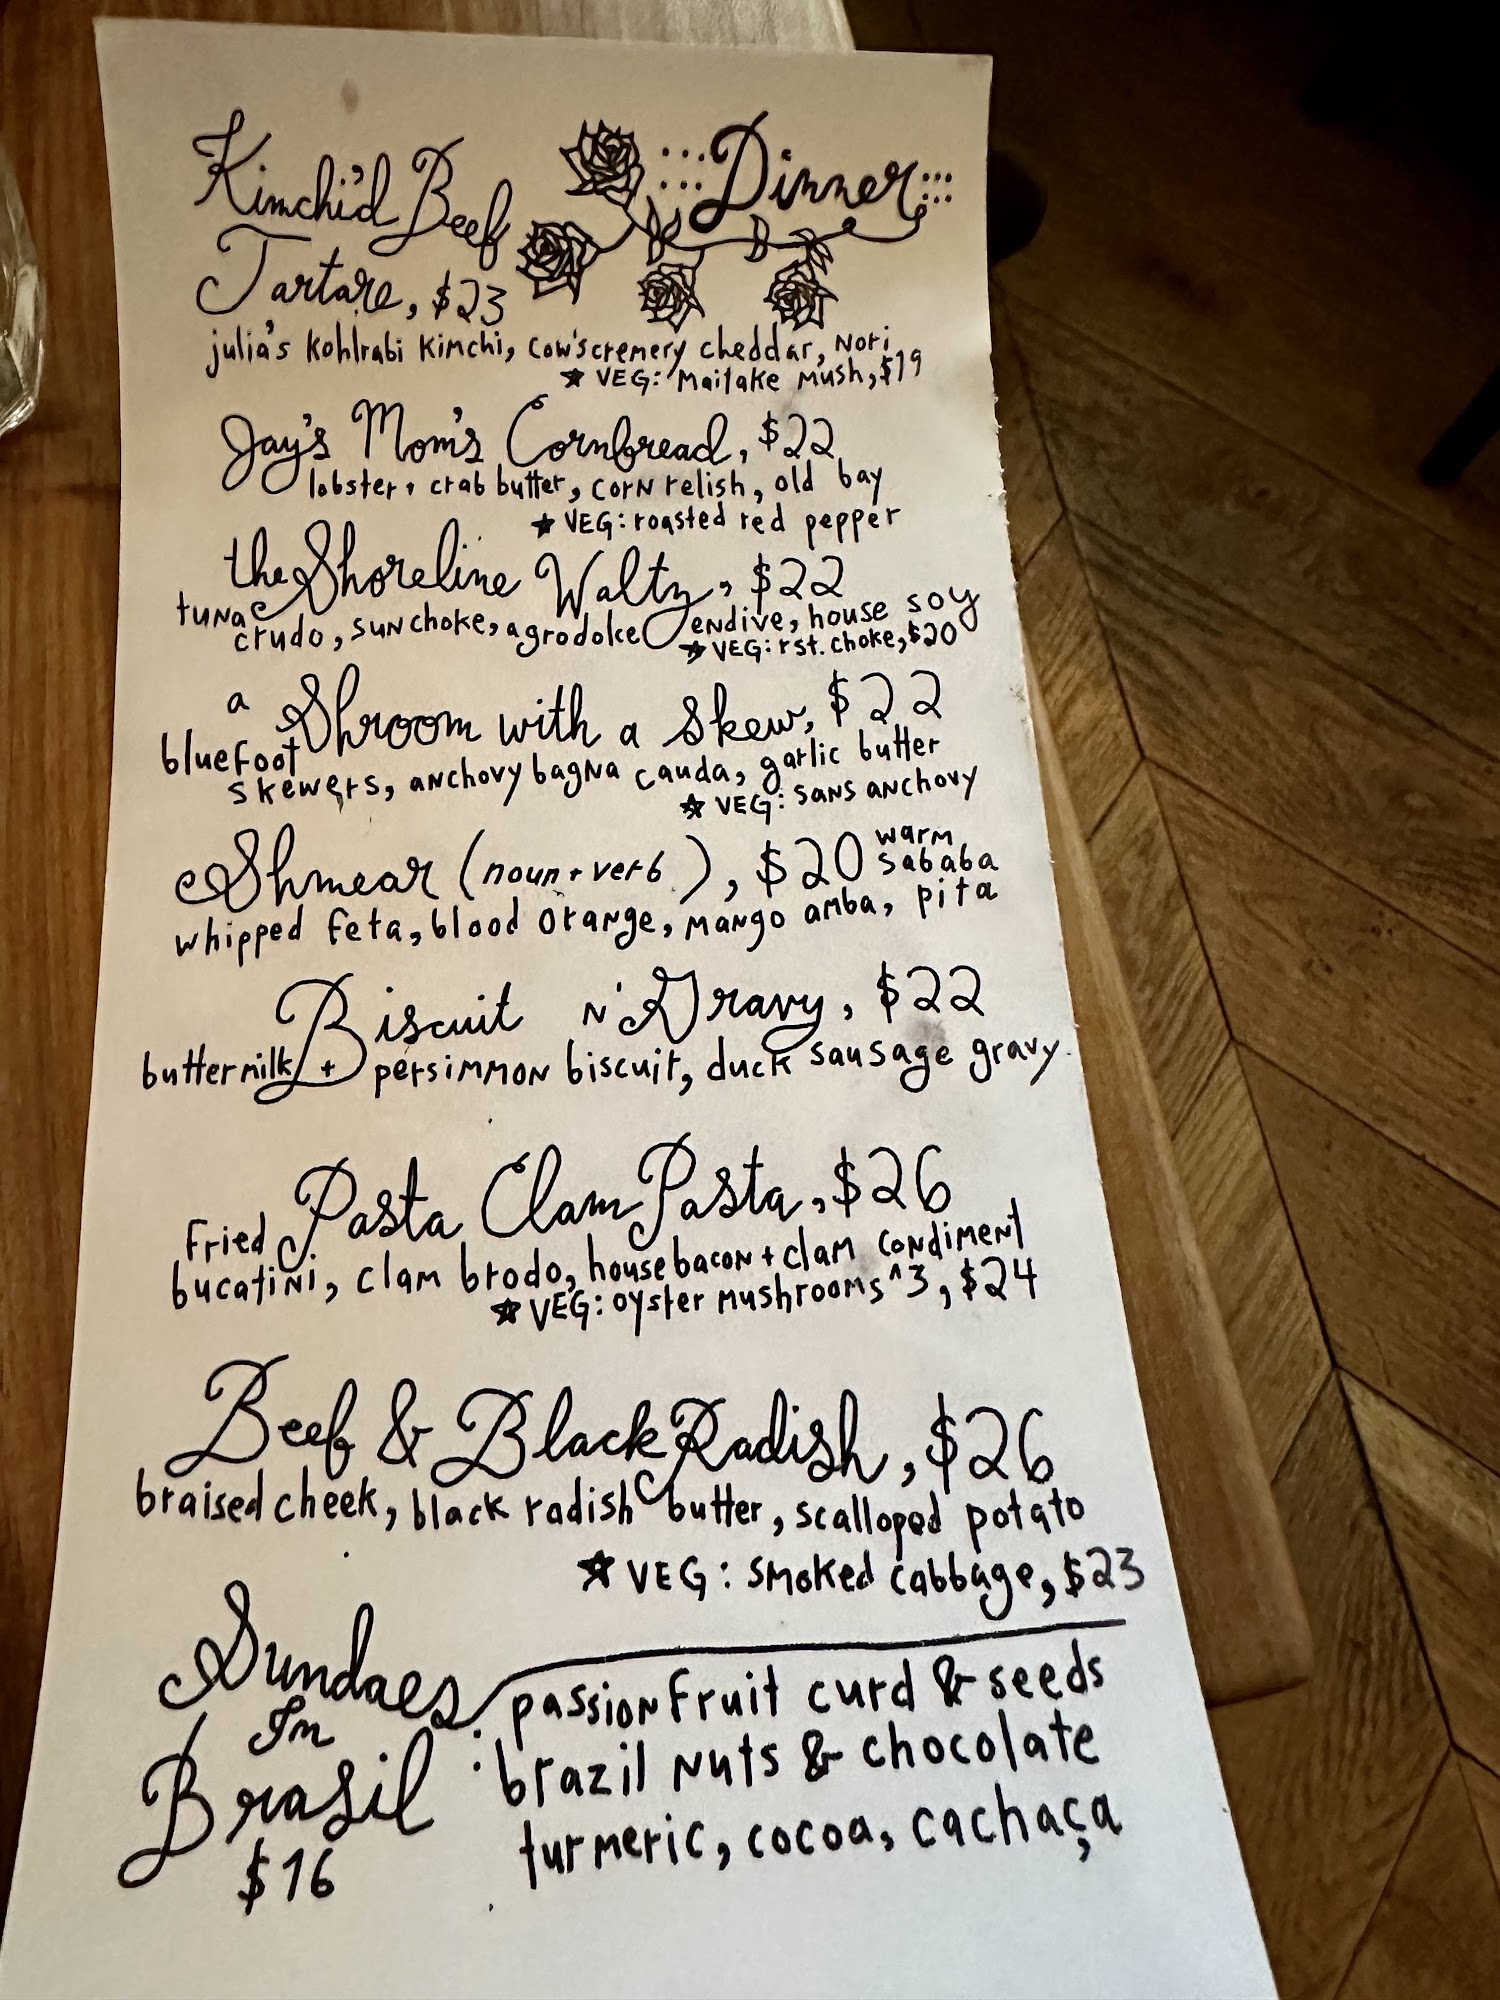 :::Dinner:::
Kimchi'd Beef
Tartare, $23
julia's kohlrabi kimchi, cow's cremery cheddar, nori
★ VEG: Maitake Mush, $19
Jay's Mom's Cornbread, $22
lobster + crab butter, corn relish, old bay
★ VEG: roasted red pepper
the Shoreline Waltz, $22
tuna
crudo, sunchoke, agrodolce endive, house soy
★ VEG: rst. choke, $20
a Shroom with a Skew, $22
bluefoot
skewers, anchovy bagna cauda, garlic butter
★ VEG: sans anchovy
Shmear (noun + verb), $20 warm
sababa
whipped feta, blood orange, mango amba, pita
Biscuit n' Gravy, $22
buttermilk + persimmon biscuit, duck sausage gravy
Pasta Clam Pasta, $26
fried
bucatini, clam brodo, house bacon + clam condiment
★ VEG: oyster mushrooms^3, $24
Beef & Black Radish, $26
braised cheek, black radish butter, scalloped potato
★ VEG: smoked cabbage, $23
Sundaes
In
Brasil
$16
: passionfruit curd & seeds
brazil nuts & chocolate
turmeric, cocoa, cachaça